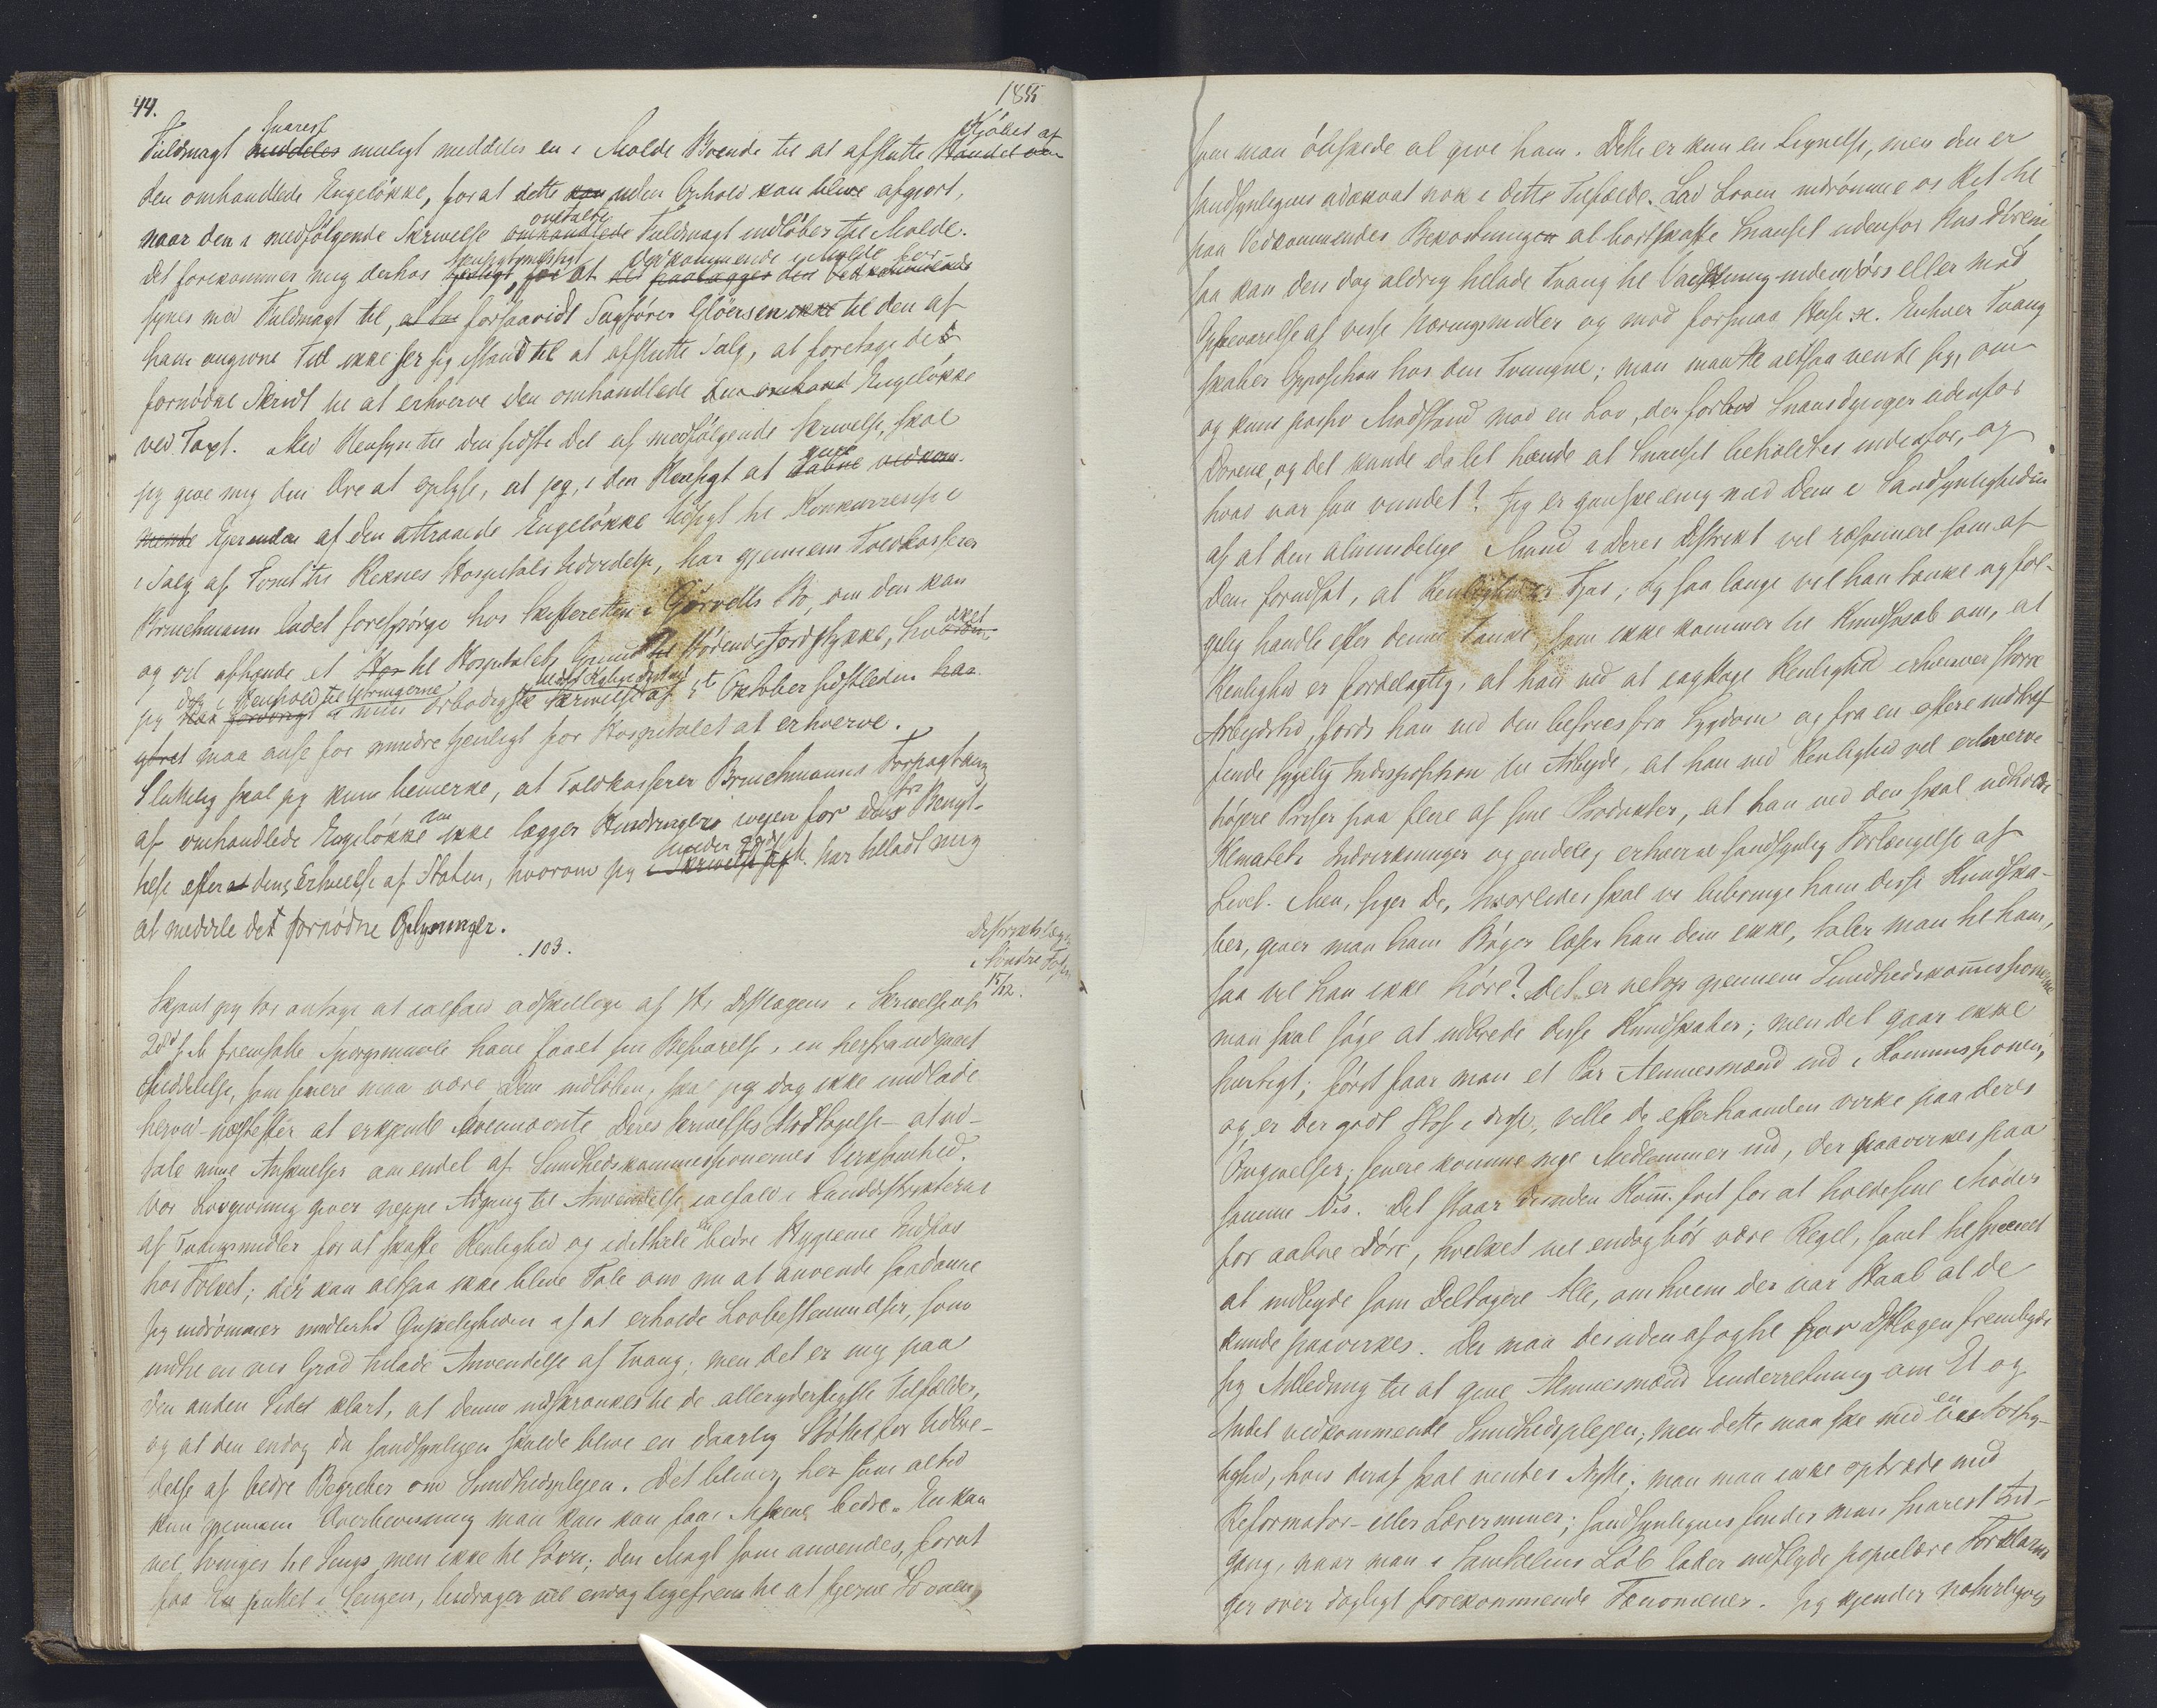 44.
1855
snarest
Kjöbet af
Fuldmagt meddeles muligt meddeles en i Molde Boende til at afslutte Handel om
den omhandlede Engelökke, for at dette kan uden Ophold kan blive afgjort,
omtalte
naar den i medfölgende Skrivelse omhandlede Fuldmagt indlöber til Molde.
hensigtsmæssigt Vedkommende i Molde for-
Det forekommer mig derhos at den Vedkommende
synes med Fuldmagt til, forsaavidt Sagförer Glöersen ikke til den af
ham angivne Tid ikke ser sig istand til at afslutte Salg, at foretage de
fornödne Skridt til at erhverve den omhandlede den omhand Engelökke
ved Taxt. Med Hensyn til den sidste Del af medfölgende Skrivelse, skal
give
jeg give mig den Ære at oplyse, at jeg, i den Hensigt at aabne vedkom-
mende Eierinden af den attraaede Engelökke Udsigt til Konkurrence i
i Salg af Tomt til Reknes Hospitals Udvidelse, har gjennem Toldkasserer
Brinchmann ladet forespörge hos Skifteretten i Görvells Bo, om den kan
og vil afhænde et til Hospitalets Grund stödende Jordstykke, hvilket
dog i Henhold til Ytringerne
jeg i min ærbödigste Skrivelse af 5te Oktober sidstleden har
gjort maa anse for mindre tjenligt for Hospitalet at erhverve.
Sluttelig skal jeg kun bemerke, at Toldkasserer Brinchmanns Forpagtning
af omhandlede Engelökke ikke lægger Hindringer i veien for dens Benyt-
telse efter dens Erhvelse af Staten, hvorom jeg har tilladt mig
at meddele det fornödne Oplysninger.
103.
Distriktslægen
i Söndre Fosen
15/12.
Skjönt jeg tör antage at ialfald adskillige af Hr. Distlægens i Skrivelse af
28d f. M. fremsatte Spörgsmaale have faaet sin Besvarelse i en herfra udgaaet
Meddelelse, som senere maa være Dem indlöben, skal jeg dog ikke undlade
herved - næstefter at erkjende Deres Skrivelses Modtagelse - at ud-
tale mine Anskuelser om endel af Sundhedskommissionernes Virksomhed.
Vor Lovgivning giver neppe Adgang til Anvendelse ialfald i Landdistrikterne
af Tvangsmidler for at skaffe Renlighed og idethele en bedre Hygieine Indpas
hos Folket; der kan altsaa ikke blive Tale om nu at anvende saadanne
Jeg indrömmer imidlertid Önskeligheden af at erholde Lovbestemmelser, som
indtil en vis Grad tillade Anvendelse af Tvang; men det er mig paa
den anden Side klart, at denne indskrænkes til de alleryderligste Tilfælde,
og at den endog da sandsynligen skulde blive en daarlig Stötte for Udbre-
delse af bedre Begreber om Sundhedsplejen. Det bliver, her som altid
kun gjennem Overbevisning man kan kan faae bedre. En kan
vel tvinges til Sengs, men ikke til Sövn; den Magt som anvendes, forat
faa En puttet i Sengen, bidrager vel endog ligefrem til at fjerne Sövnen,
som man önskede at give ham. Dette er kun en Lignelse, men den er
sandsynligvis adækvat nok i dette Tilfælde. Lad Loven indrömme os Ret til
paa Vedkommendes Bekostning at bortskaffe Snavset udenfor Husdören
saa kan den dog aldrig tillade Tvang til Vaskning indendörs eller mod
Opbevarelse af visse Næringsmidler og mod forsmaa Huse &c. Enhver Tvang
skaber Opposition hos den Tvungne; man maatte altsaa vente sig, om
og kuns passiv Modstand mod en Lov, der forböd Snavsdynger udenfor
Dörene, og det kunde da let hænde at Snavset beholdtes indenfor, og
hvad var saa vundet? Jeg er ganske enig med Dem i Sandsynligheden
af at den almindelige Mand i Deres Distrikt vil ræsonnere som af
Dem forudsat, at Renlighed er Fjas; og saa længe vil han tænke og föl-
gelig handle efter denne Tanke, som ikke kommer til Kundskab om, at
Renlighed er fordelagtig, at han ved at iagttage Renlighed erhverver större
Arbejdstid, fordi han ved den befries fra Sygdom og fra en oftere indtræf-
fende sygelig Indisposition til Arbejde, at han ved Renlighed vil erhverve
höjere Priser paa flere af sine Produkter, at han ved den skal udholde
Klimatets Indvirkninger og endelig erhverve sandsynlig Forlængelse af
Livet. Men, siger De, hvorledes skal vi bibringe ham disse Kundska-
ber, giver man ham Böger læser han dem ikke, taler man til ham,
saa vil han ikke höre? Det er netop gjennem Sundhedskommissionerne
man skal söge at udbrede disse Kundskaber; men det gaar ikke
hurtigt; först faar man et Par Almuesmænd ind i Kommissionen,
og er der godt Stof i disse, ville de efterhaanden virke paa deres
Omgivelser; senere komme nye Medlemmer ind, der paavirkes paa
samme Vis. Det staar desuden Kom. frit for at holde sine Möder
for aabne Döre, hvilket vel endog bör være Regel, samt til specielt
at indbyde som Deltagere Alle, om hvem der var Haab at de
kunde paavirkes. Der maa desuden af og til for Distlægen frembyde
sig Anledning til at give Almuesmænd Underretning om Et og
en
Andet vedkommende Sundhedsplejen; men dette maa ske med vis Forsig-
tighed, hvis deraf skal ventes Nytte; man maa ikke optræde med
Reformator- eller Lærerminer; sandsynligvis finder man snarest Ind-
gang, naar man i Samtalens Löb lader indflyde populære Forklarin-
ger over dagligt forekommende Fænomener. Jeg kjender naturligvis